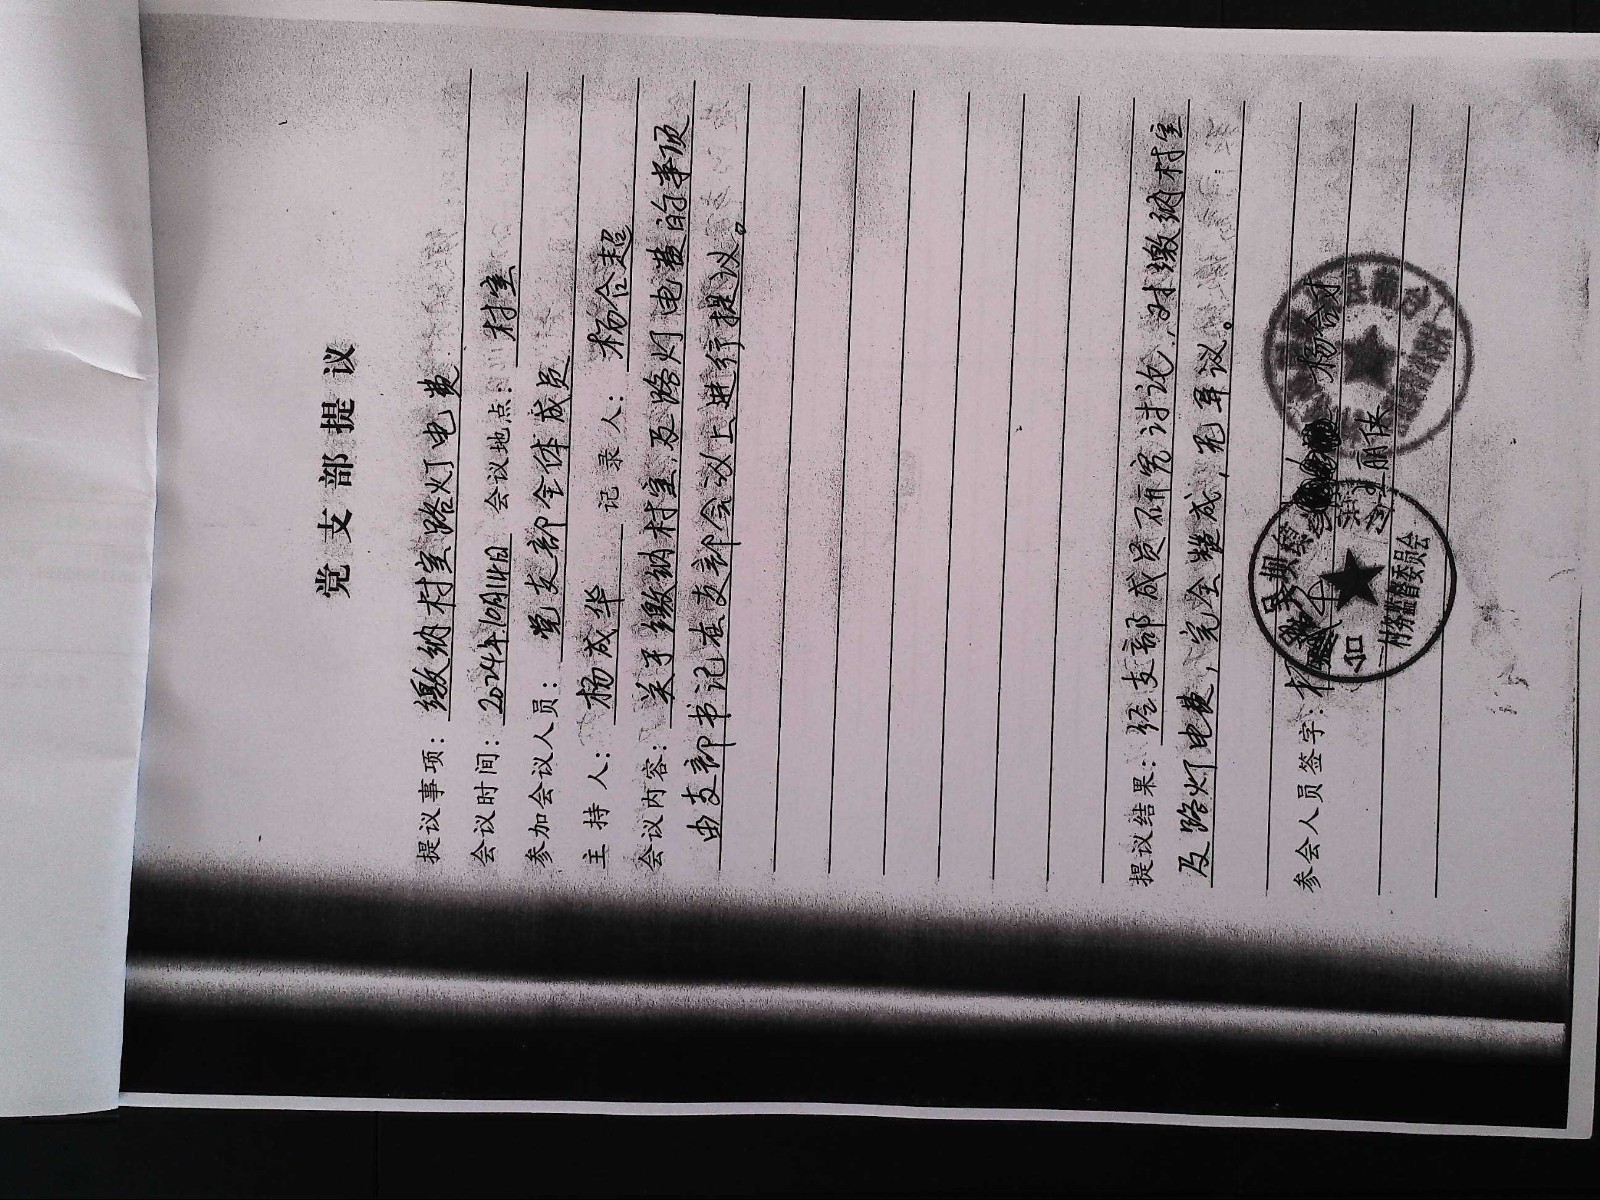 党支部提议
提议事项：缴纳村室路灯电费
会议时间：2024年10月14日 会议地点：村室
参加会议人员：党支部全体成员
主持人：杨成华 记录人：杨合超
会议内容：关于缴纳村室及路灯电费的事项
由支部书记在支部会议上进行提议。
提议结果：经支部成员研究讨论，对缴纳村室
及路灯电费，完全赞成，无异议。
参会人员签字：
村务监督委员会